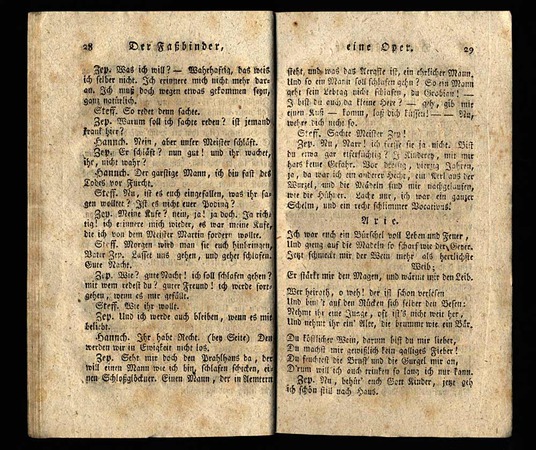 28 Der Faßbinder,
Zep. Was ich will? — Wahrhaftig, das weis
ich selber nicht. Ich erinnere mich nicht mehr dar-
an. Ich muß doch wegen etwas gekommen seyn,
ganz natürlich.
Steff. So redet denn sachte.
Zep. Warum soll ich sachte reden? ist jemand
krank hier?
Hannch. Nein, aber unser Meister schläft.
Zep. Er schläft? nun gut! und ihr wachet,
ihr, nicht wahr?
Hannch. Der garstige Mann, ich bin fast des
Todes vor Furcht.
Steff. Nu, ist es euch eingefallen, was ihr sa-
gen wolltet? Ist es nicht euer Poding?
Zep. Meine Kufe? nein, ja! ja doch. Ja rich-
tig! ich erinnere mich wieder, es war meine Kufe,
die ich von dem Meister Martin fordern wollte.
Steff. Morgen wird man sie euch hinbringen,
Vater Zep. Lasset uns gehen, und gehet schlafen.
Gute Nacht.
Zep. Wie? gute Nacht! ich soll schlafen gehen?
mit wem redest du? guter Freund! ich werde fort-
gehen, wenn es mir gefällt.
Steff. Wie ihr wollt.
Zep. Und ich werde auch bleiben, wenn es mir
beliebt.
Hannch. Ihr habt Recht. (bey Seite) Den
werden wir in Ewigkeit nicht los.
Zep. Seht mir doch den Prahlhans da, der
will einen Mann wie ich bin, schlafen schicken, ei-
nen Schloßglöckner. Einen Mann, der in Aemtern
eine Oper. 29
steht, und was das Aergste ist, ein ehrlicher Mann,
Und so ein Mann soll schlafen gehen? So ein Mann
geht sein Lebtag nicht schlafen, du Grobian! —
J bist du auch da kleine Hexe? — geh, gib mir
einen Kuß — komm, laß dich küssen! — — Nu,
wehre dich nicht so.
Steff. Sachte Meister Zep!
Zep. Nu, Narr! ich fresse sie ja nicht. Bist
du etwa gar eifersüchtig? J Kinderey, mit mir
hats keine Gefahr. Vor dreißig, vierzig Jahren,
ja, da war ich ein anderer Hecht, ein Kerl aus der
Wurzel, und die Mädeln sind mir nachgelaufen,
wie die Hühner. Lache nur, ich war ein ganzer
Schelm, und ein recht schlimmer Vocativus!
Arie.
Ich war euch ein Bürschel voll Leben und Feuer,
Und gieng auf die Madeln so scharf wie der Geyer.
Jetzt schmeckt mir der Wein mehr als herrlichste
Weib;
Er stärkt mir den Magen, und wärmt mir den Leib.
Wer heiroth, o weh! der ist schon verlesen
Und bind't auf den Rücken sich selber den Besen:
Nehmt ihr eine Junge, oft ist's nicht weit her,
Und nehmt ihr ein' Alte, die brummt wie ein Bär.
Du köstlicher Wein, darum bist du mir lieber,
Du machst mir gewißlich kein galliges Fieber!
Du feuchtest die Brust und die Gurgel mir an,
D'rum will ich auch trinken so lang ich nur kann.
Zep. Nu, behüt' euch Gott Kinder, jetzt geh
ich schön still nach Haus.